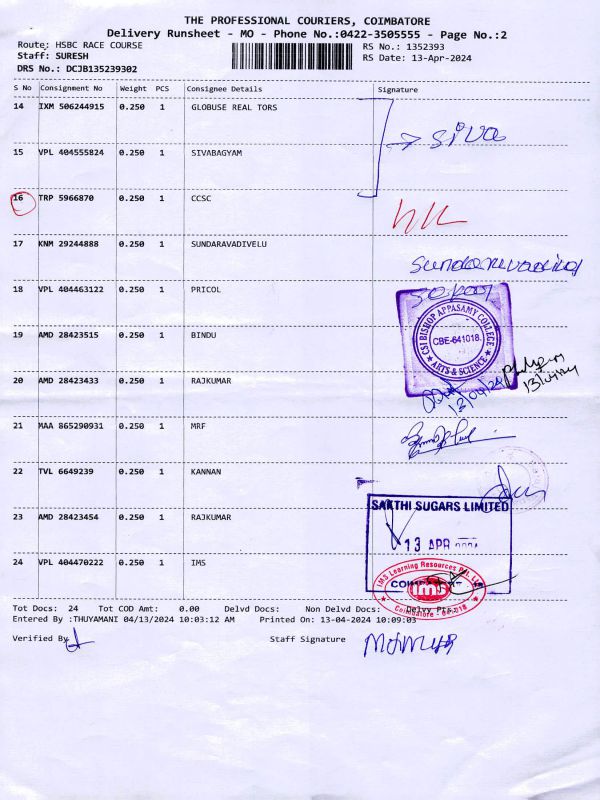 THE PROFESSIONAL COURIERS, COIMBATORE
Delivery Runsheet - MO - Phone No.:0422-3505555 - Page No.:2
Route: HSBC RACE COURSE RS No.: 1352393
Staff: SURESH RS Date: 13-Apr-2024
DRS No.: DCJB135239302
S No Consignment No Weight PCS Consignee Details Signature
14 IXM 506244915 0.250 1 GLOBUSE REAL TORS
siva
15 VPL 404555824 0.250 1 SIVABAGYAM
16 TRP 5966870 0.250 1 CCSC
17 KNM 29244888 0.250 1 SUNDARAVADIVELU
18 VPL 404463122 0.250 1 PRICOL
CSI BISHOP APPASAMY COLLEGE
CBE-641018.
ARTS & SCIENCE
19 AMD 28423515 0.250 1 BINDU
20 AMD 28423433 0.250 1 RAJKUMAR
13/04/24
13/04/24
21 MAA 865290931 0.250 1 MRF
22 TVL 6649239 0.250 1 KANNAN
SAKTHI SUGARS LIMITED
23 AMD 28423454 0.250 1 RAJKUMAR
13 APR 2024
24 VPL 404470222 0.250 1 IMS
IMS Learning Resources Pvt. Ltd
ims
Coimbatore - 641 018
Tot Docs: 24 Tot COD Amt: 0.00 Delvd Docs: Non Delvd Docs: Delvy Pts:
Entered By :THUYAMANI 04/13/2024 10:03:12 AM Printed On: 13-04-2024 10:09:03
Verified By Staff Signature